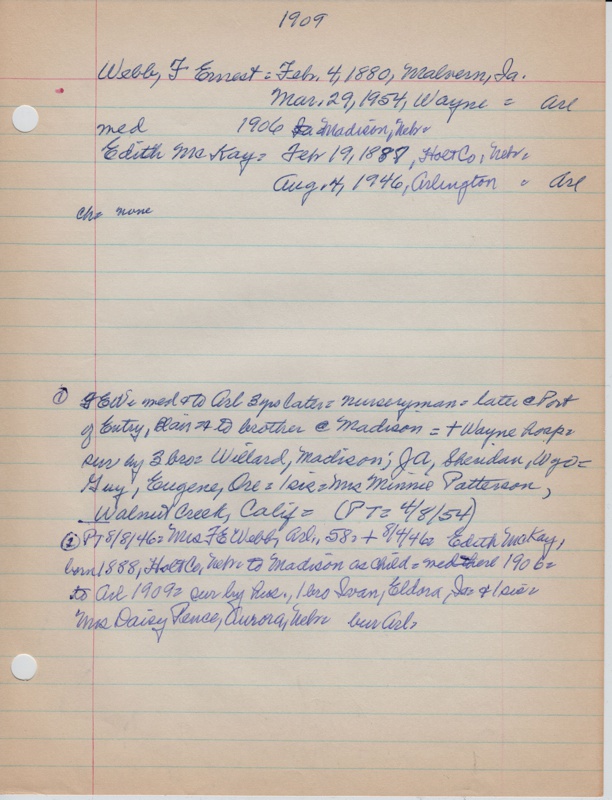 1909
Webb, F Ernest = Feb. 4, 1880, Malvern, Ia.
Mar. 29, 1954, Wayne = Arl
med 1906 Madison, Nebr=
Edith McKay = Feb 19, 1888, Holt Co, Nebr=
Aug. 4, 1946, Arlington = Arl
ch= none
① FEW= med + to Arl 3 yrs later = nurseryman = later @ Port
of Entry, Blair + to brother @ Madison = + Wayne hosp=
sur by 3 bro= Willard, Madison; JA, Sheridan, Wyo=
Guy, Eugene, Ore = 1 sis = Mrs Minnie Patterson,
Walnut Creek, Calif = (PT = 4/8/54)
② PT 8/8/46 = Mrs FE Webb, Arl, 58 = + 8/4/46 = Edith McKay,
born 1888, Holt Co, Nebr= to Madison as child = med there 1906=
to Arl 1909 = sur by hus., 1 bro Ivan, Eldora, Ia= + 1 sis=
Mrs Daisy Pence, Aurora, Nebr= bur Arl=